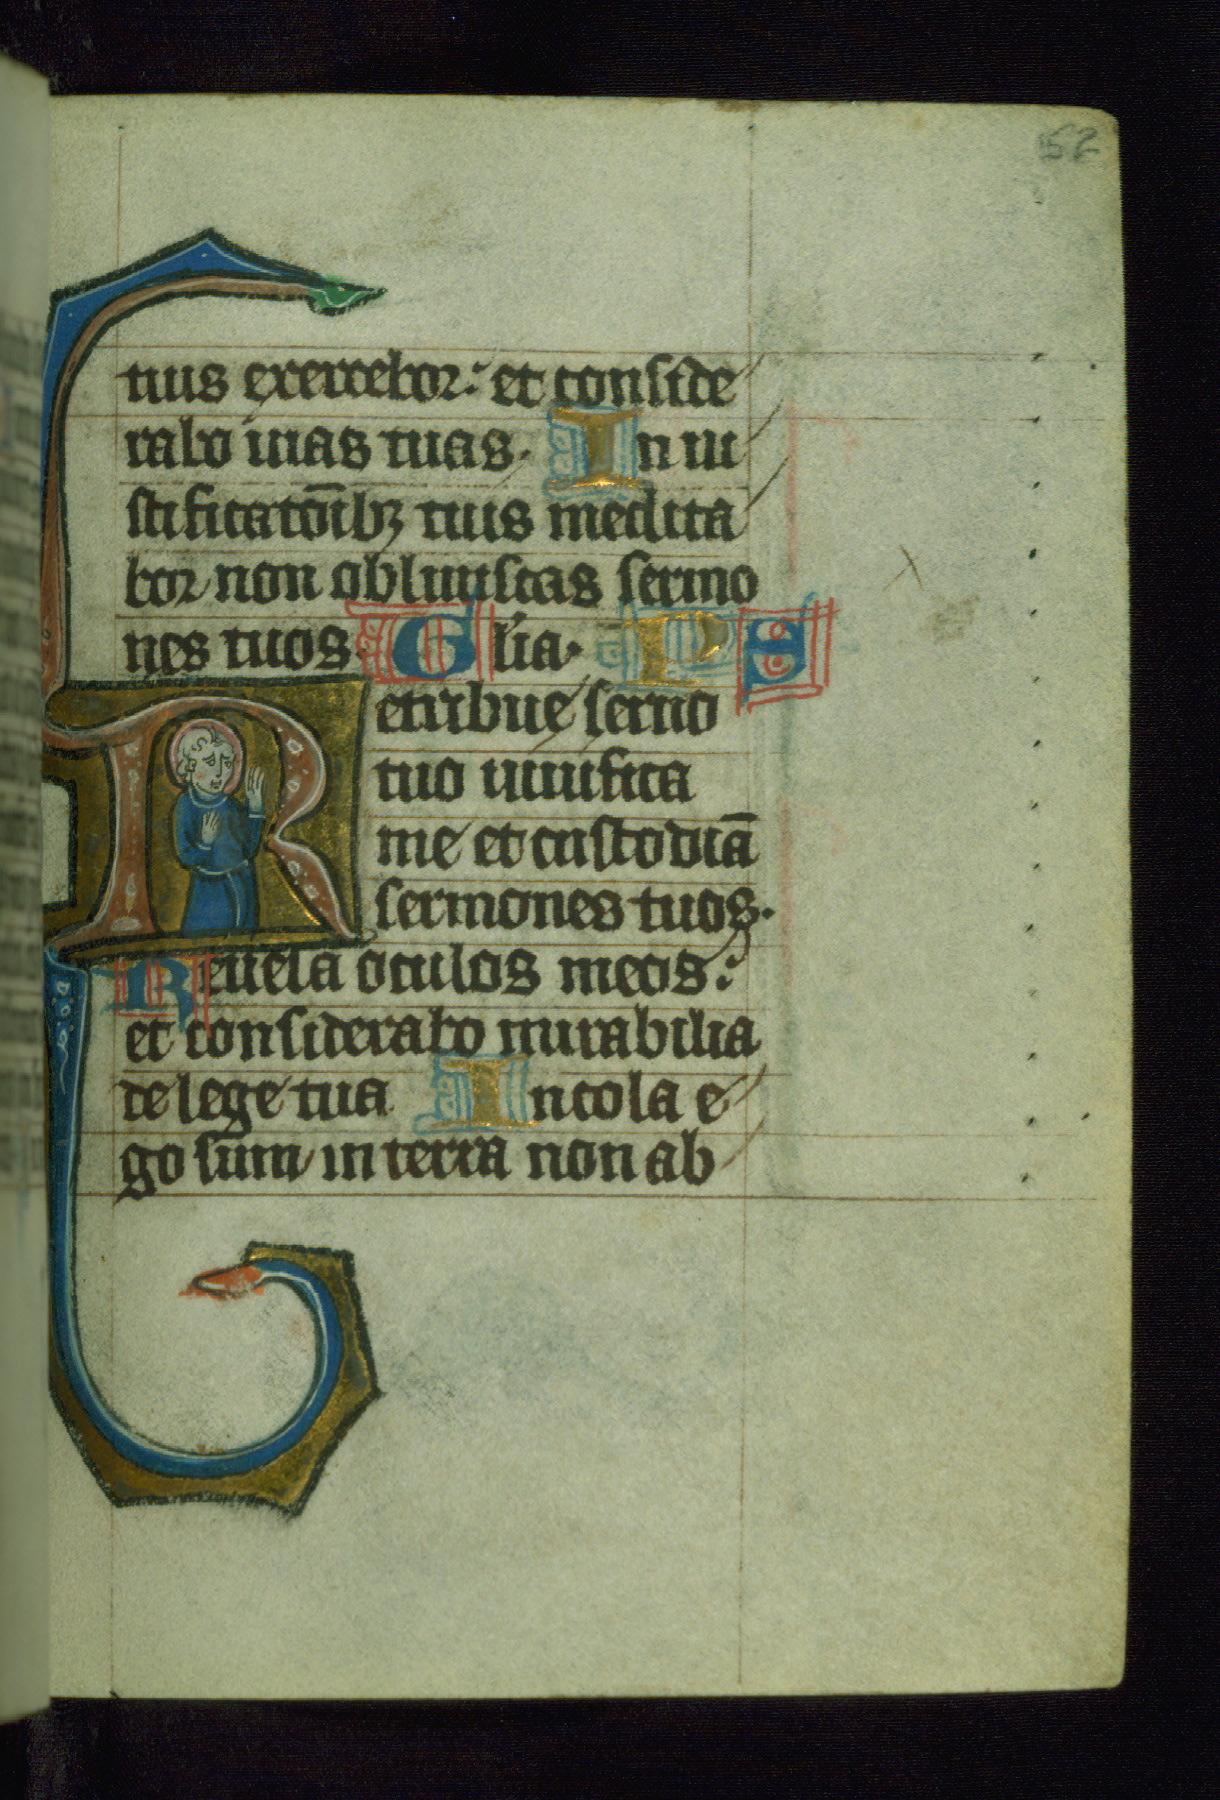 52
tuis exercebor: et conside
rabo uias tuas. In iu
stificatōibꝫ tuis medita
bor non obliuiscas sermo
nes tuos. Glīa. PS
Retribue seruo
tuo uiuifica
me et custodiā
sermones tuos.
Reuela oculos meos:
et considerabo mirabilia
de lege tua Incola e
go sum in terra non ab